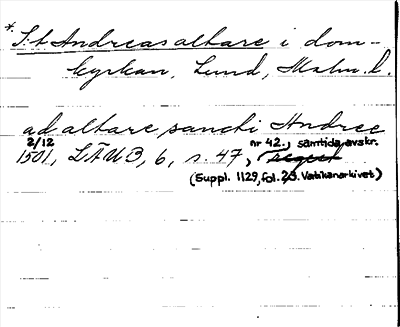 *S:t Andreas altare i dom-
kyrkan, Lund, Malm. l.
ad altare sancti Andree
2/12 nr 42., samtida avskr.
1501, LÄUB, 6, s. 47, regest
(Suppl. 1129, fol. 23. Vatikanarkivet)